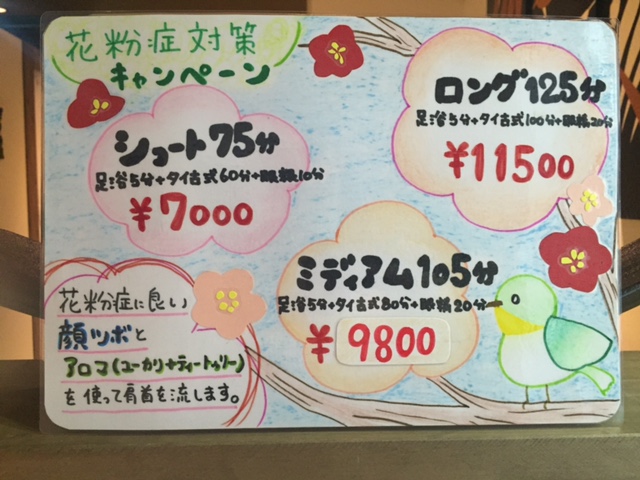 花粉症対策
キャンペーン
ショート75分
足浴5分+タイ古式60分+眼精10分
¥7000
ロング125分
足浴5分+タイ古式100分+眼精20分
¥11500
ミディアム105分
足浴5分+タイ古式80分+眼精20分
¥9800
花粉症に良い
顔ツボと
アロマ(ユーカリ+ティートゥリー)
を使って肩首を流します。